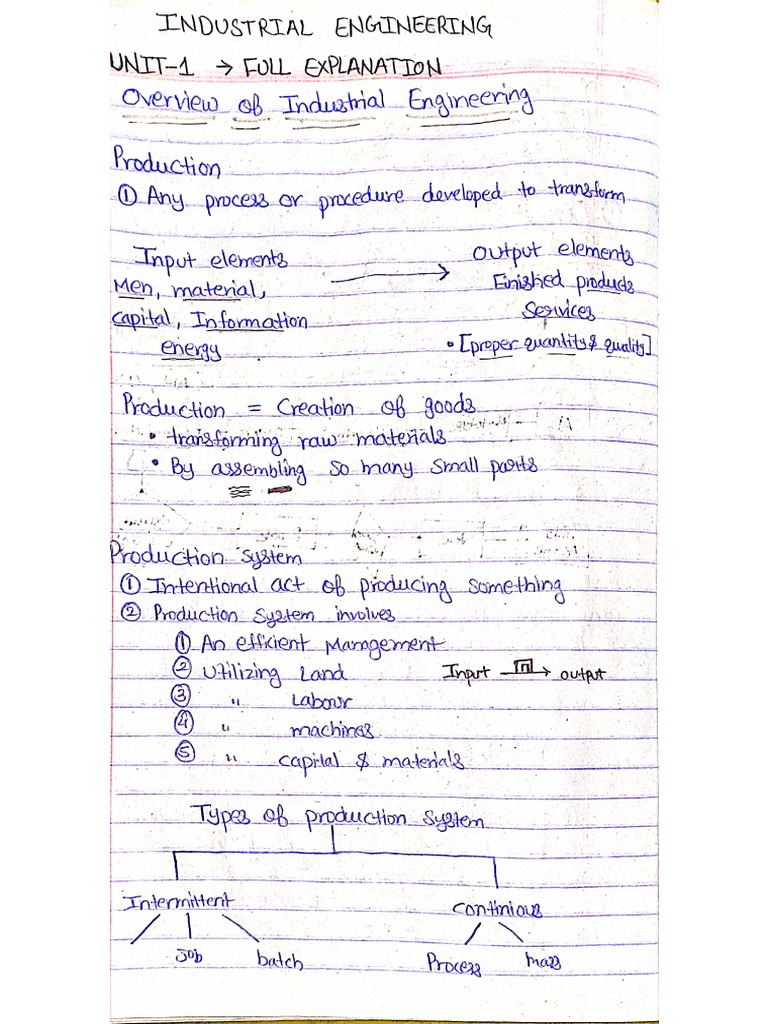 INDUSTRIAL ENGINEERING
UNIT-1 → FULL EXPLANATION
Overview of Industrial Engineering
Production
① Any process or procedure developed to transform
Input elements → Output elements
Men, material, Finished products
capital, Information Services
energy • [proper quantity & quality]
Production = Creation of goods
• transforming raw materials
• By assembling so many small parts
Production system
① Intentional act of producing something
② Production System involves
① An efficient Management
② Utilizing Land Input → output
③ " Labour
④ " machines
⑤ " capital & materials
Types of production system
Intermittent Continious
Job batch Process mass